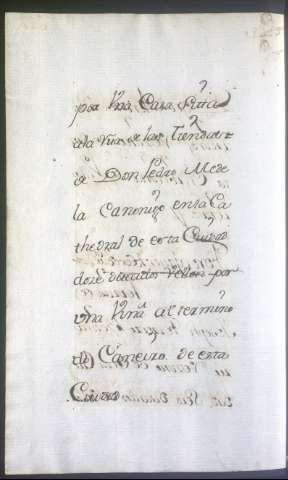 por Una Casa, sita
a la Rua de las Tiendas
a Don Pedro Mede
la Canonigo en la Ca
thedral de esta Ciudad
doze ducados Vellon por
una Viña al termino
de Carneiro de esta
Ciudad